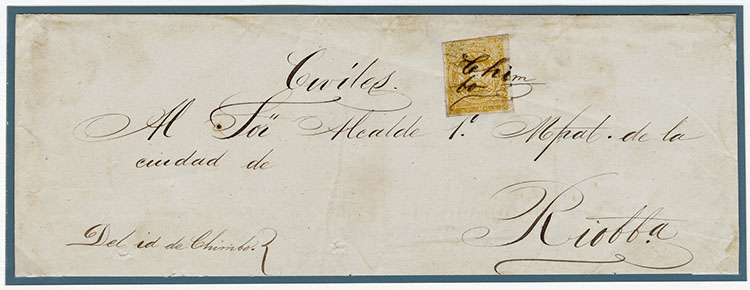 Civiles.
Chim
bo
Al Sor Alcalde 1º. Mpal. de la
ciudad de
Riobba.
Del id de Chimbo.